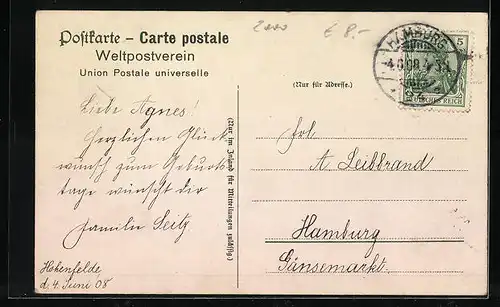 2000 € 8.-
Postkarte – Carte postale
Weltpostverein
Union Postale universelle
(Nur für Adresse.)
HAMBURG
4.6.08.4-5N
5
DEUTSCHES REICH
(Nur im Inland für Mitteilungen zulässig)
Liebe Agnes!
Herzlichen Glück
wünsch zum Geburts
tage wünscht dir
Familie Seitz
Hohenfelde
d. 4. Juni 08
Frl.
A. Leibbrand
Hamburg
Gänsemarkt.